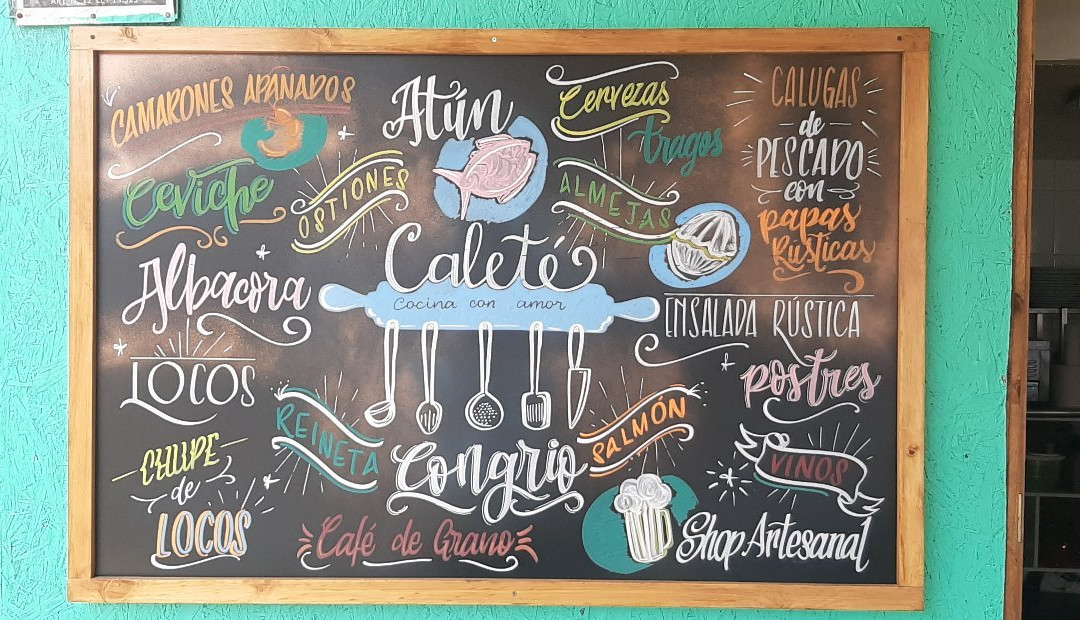 CAMARONES APANADOS
Ceviche
OSTIONES
Albacora
LOCOS
CHUPE
de
LOCOS
Atún
Caleté
Cocina con amor
REINETA
Congrio
SALMÓN
Café de Grano
Cervezas
tragos
ALMEJAS
CALUGAS
de
PESCADO
con
papas
Rústicas
ENSALADA RÚSTICA
postres
VINOS
Shop Artesanal